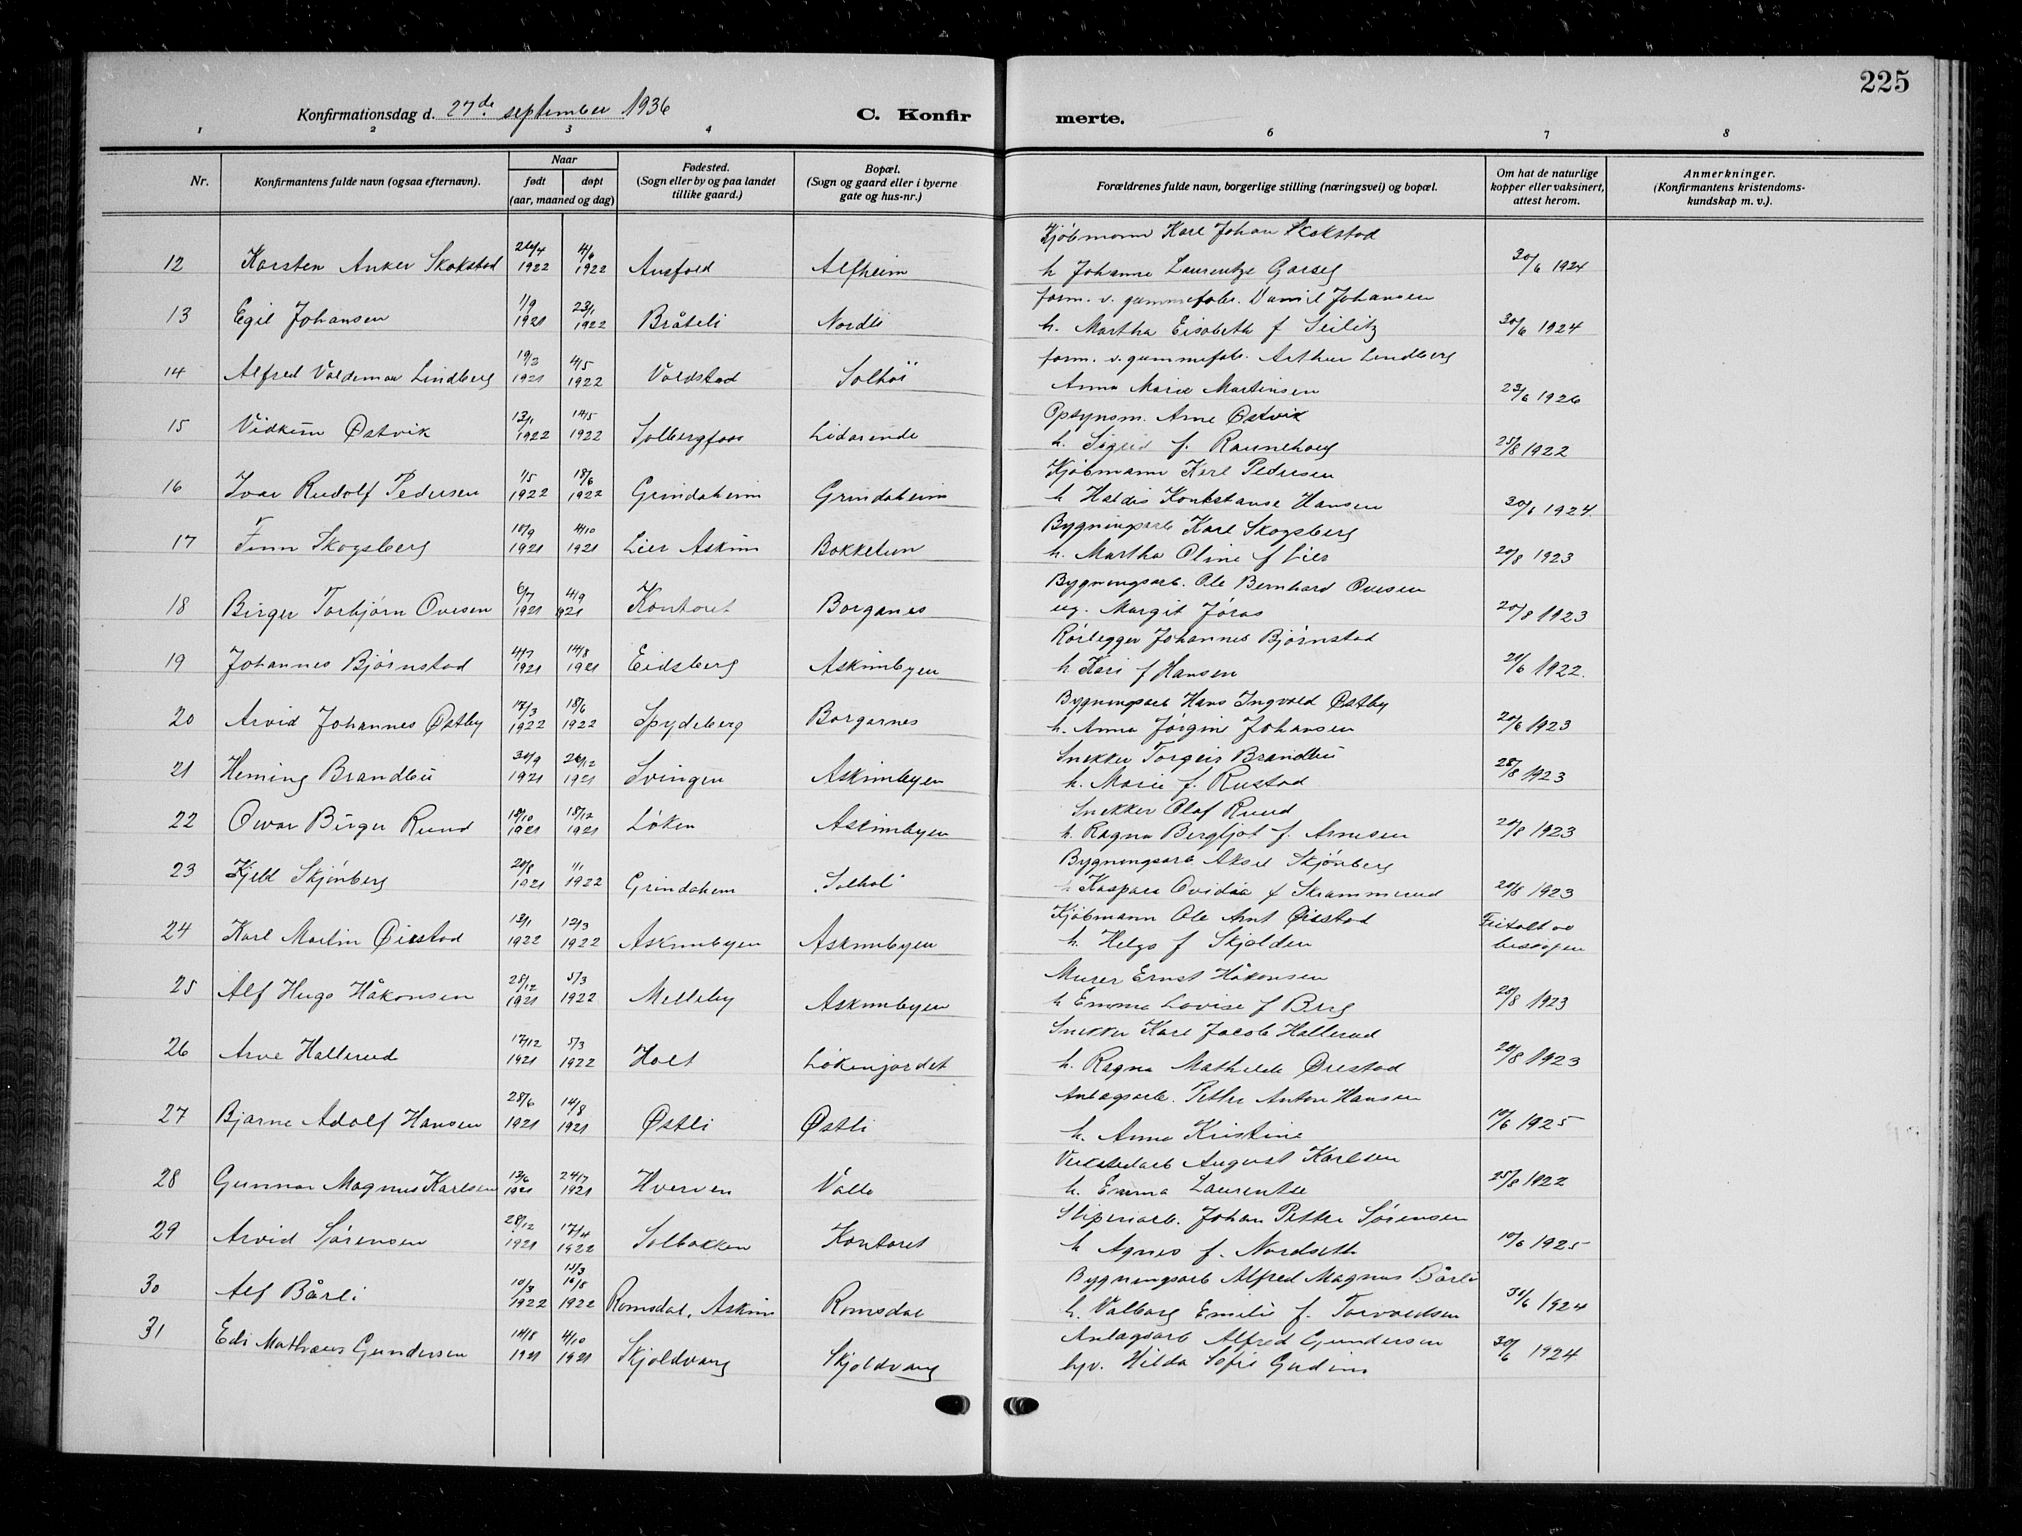 225
Konfirmationsdag d. 27de september 1936 C. Konfirmerte.
1 2 3 4 6 7 8
Nr. Konfirmantens fulde navn (ogsaa efternavn). Naar født døpt (aar, maaned og dag) Fødested. (Sogn eller by og paa landet tillike gaard.) Bopæl. (Sogn og gaard eller i byerne gate og hus-nr.) Forældrenes fulde navn, borgerlige stilling (næringsvei) og bopæl. Om hat de naturlige kopper eller vaksinert, attest herom. Anmerkninger. (Konfirmantens kristendomskundskap m. v.).
Kjøbmann Karl Johan Skakstad
12 Karsten Anker Skakstad 26/4 1922 4/6 1922 Alfheim h. Johanne Laurentze 30/6 1924
form. v. gummifabr. Daniel Johansen
13 Egil Johansen 1/9 1921 23/1 1922 Bråteli Nordli h. Martha Elisabeth f. 30/6 1924
form. v. gummifabr. Arthur Lindberg
14 Alfred Valdemar Lindberg 19/3 1921 4/5 1922 Voldstad Solhøi Anna Marie Martinsen 23/6 1926
Opsynsm. Arne Østvik
15 Vidkun Østvik 13/1 1922 14/5 1922 Solbergfoss Lidarende h. Sigrid f. Rannehaug 25/8 1922
Kjøbmann Karl Pedersen
16 Ivar Rudolf Pedersen 1/5 1922 18/6 1922 Grindaheim Grindaheim h. Haldis Konstanse Hansen 30/6 1924.
Bygningsarb. Karl Skogsberg
17 Finn Skogsberg 18/9 1921 4/10 1921 Lier Askim Bakketun h. Martha Oline f. Lier 20/8 1923
Bygningsarb. Ole Bernhard Ovesen
18 Birger Torbjørn Ovesen 6/7 1921 4/9 1921 Kontoret Borgarnes ug. Margit Jøraas 20/8 1923
Rørlegger Johannes Bjørnstad
19 Johannes Bjørnstad 4/7 1921 14/8 1921 Eidsberg Askimbyen h. Kari f. Hansen 21/6 1922.
Bygningsarb Hans Ingvald Østby
20 Arvid Johannes Østby 17/3 1922 18/6 1922 Spydeberg Borgarnes h. Anna Jørgine Johansen 20/6 1923
Snekker Torgeir Brandbu
21 Heming Brandbu 30/9 1921 26/12 1921 Svingen Askimbyen h. Marie f. Rustad 28/8 1923
Snekker Olaf Ruud
22 Birger Ruud 18/10 1921 18/12 1921 Løken Askimbyen h. Ragna Bergljot f. Arnesen 20/8 1923
Bygningsarb. Aksel Skjønberg
23 Kjeld Skjønberg 20/8 1921 1/1 1922 Grindaheim Solhøi h. Kaspara Ovidia f. Skrammerud 20/8 1923
Kjøbmann Ole Arnt Ørstad
24 Karl Martin Ørstad 13/1 1922 12/3 1922 Askimbyen Askimbyen h. Helga f. Skjolden
Murer Ernst Håkonsen
25 Alf Hugo Håkonsen 28/12 1921 5/3 1922 Melleby Askimbyen h. Emma Lovise f. Berg 20/8 1923
Snekker Karl Jacob Hallerud
26 Arve Hallerud 17/12 1921 5/3 1922 Holt Løkenjordet h. Ragna Mathilde Ørestad 20/8 1923
Anlagsarb. Petter Anton Hansen
27 Bjarne Adolf Hansen 28/6 1921 14/8 1921 Østli Østli h. Anna Kristine 10/6 1925
Verkstedarb August Karlsen
28 Gunnar Magnus Karlsen 13/6 1921 24/7 1921 Hverven Valle h. Emma Laurentze 25/8 1922
Sliperiarb. Johan Petter Sørensen
29 Arvid Sørensen 28/12 1921 17/4 1922 Solbakken Kontoret h. Agnes f. Nordseth 10/6 1925
Bygningsarb Alfred Magnus Bårli
30 Alf Bårli 10/3 1922 1922 Romsdal, Askim Romsdal h. Valborg Emilie f. Torvaldsen 30/6 1924
Anlagsarb Alfred Gundersen
31 Edi Mathæus Gundersen 14/8 1921 4/10 1921 Skjoldvang Skjoldvang Hilda Sofie Gudim 30/6 1924